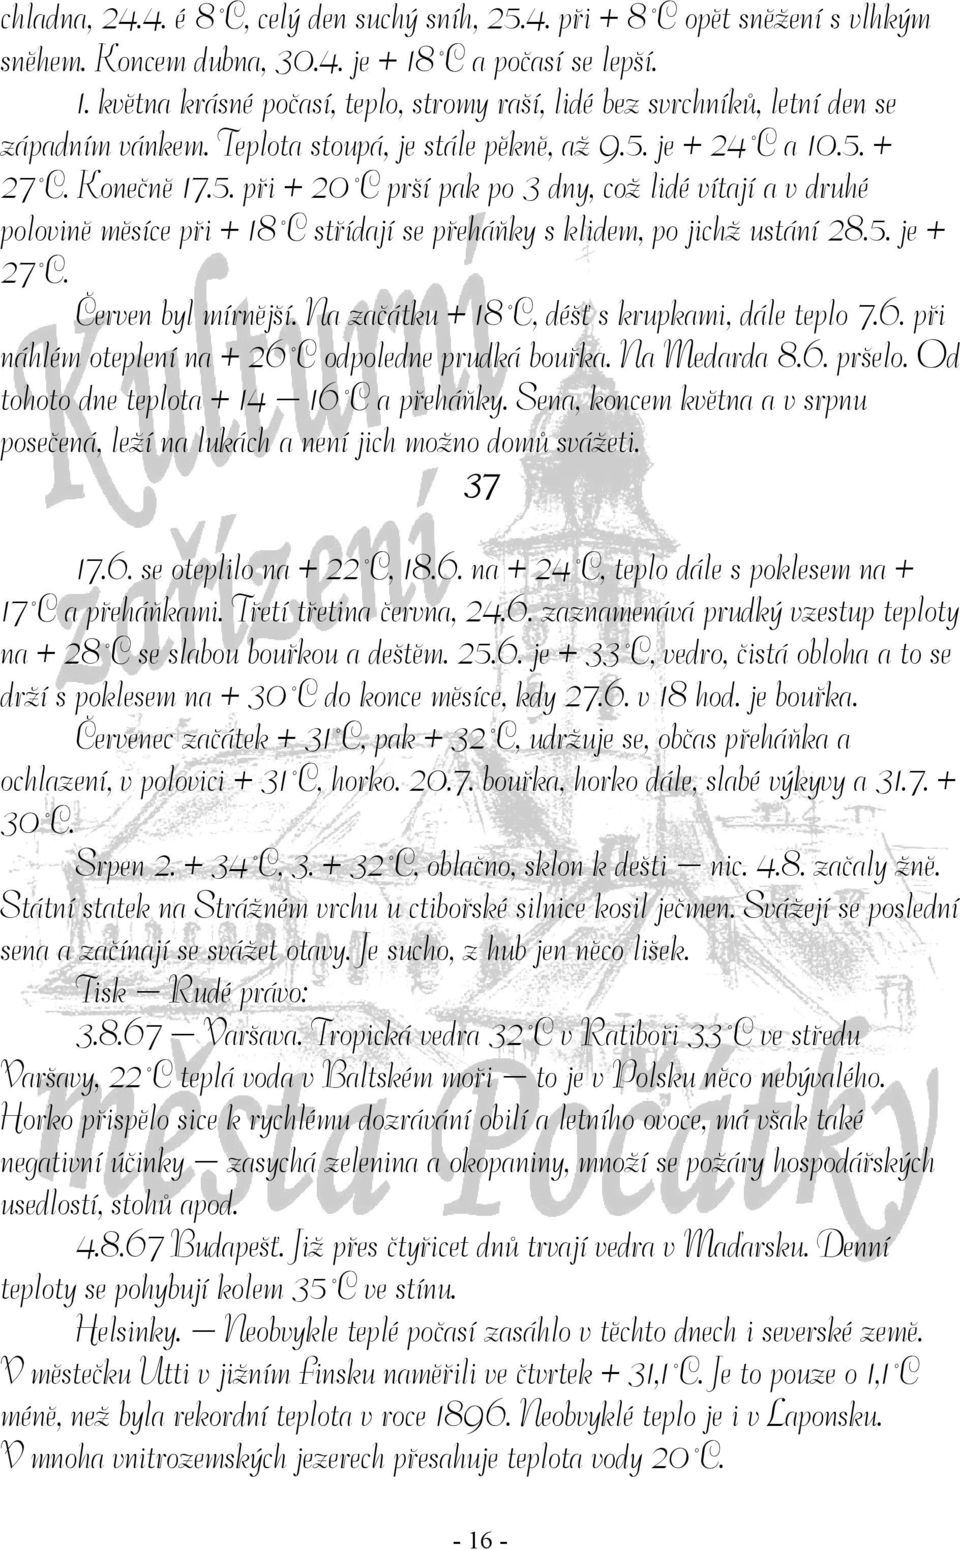 chladna, 24.4. é 8°C, celý den suchý sníh, 25.4. při + 8°C opět sněžení s vlhkým
sněhem. Koncem dubna, 30.4. je + 18°C a počasí se lepší.
1. května krásné počasí, teplo, stromy raší, lidé bez svrchníků, letní den se
západním vánkem. Teplota stoupá, je stále pěkně, až 9.5. je + 24°C a 10.5. +
27°C. Konečně 17.5. při + 20°C prší pak po 3 dny, což lidé vítají a v druhé
polovině měsíce při + 18°C střídají se přeháňky s klidem, po jichž ustání 28.5. je +
27°C.
Červen byl mírnější. Na začátku + 18°C, déšť s krupkami, dále teplo 7.6. při
náhlém oteplení na + 26°C odpoledne prudká bouřka. Na Medarda 8.6. pršelo. Od
tohoto dne teplota + 14 – 16°C a přeháňky. Sena, koncem května a v srpnu
posečená, leží na lukách a není jich možno domů svážeti.
37
17.6. se oteplilo na + 22°C, 18.6. na + 24°C, teplo dále s poklesem na +
17°C a přeháňkami. Třetí třetina června, 24.6. zaznamenává prudký vzestup teploty
na + 28°C se slabou bouřkou a deštěm. 25.6. je + 33°C, vedro, čistá obloha a to se
drží s poklesem na + 30°C do konce měsíce, kdy 27.6. v 18 hod. je bouřka.
Červenec začátek + 31°C, pak + 32°C, udržuje se, občas přeháňka a
ochlazení, v polovici + 31°C, horko. 20.7. bouřka, horko dále, slabé výkyvy a 31.7. +
30°C.
Srpen 2. + 34°C, 3. + 32°C, oblačno, sklon k dešti – nic. 4.8. začaly žně.
Státní statek na Strážném vrchu u ctibořské silnice kosil ječmen. Svážejí se poslední
sena a začínají se svážet otavy. Je sucho, z hub jen něco lišek.
Tisk – Rudé právo:
3.8.67 – Varšava. Tropická vedra 32°C v Ratiboři 33°C ve středu
Varšavy, 22°C teplá voda v Baltském moři – to je v Polsku něco nebývalého.
Horko přispělo sice k rychlému dozrávání obilí a letního ovoce, má však také
negativní účinky – zasychá zelenina a okopaniny, množí se požáry hospodářských
usedlostí, stohů apod.
4.8.67 Budapešť. Již přes čtyřicet dnů trvají vedra v Maďarsku. Denní
teploty se pohybují kolem 35°C ve stínu.
Helsinky. – Neobvykle teplé počasí zasáhlo v těchto dnech i severské země.
V městečku Utti v jižním Finsku naměřili ve čtvrtek + 31,1°C. Je to pouze o 1,1°C
méně, než byla rekordní teplota v roce 1896. Neobvyklé teplo je i v Laponsku.
V mnoha vnitrozemských jezerech přesahuje teplota vody 20°C.
- 16 -
Kulturní
zařízení
města Počátky